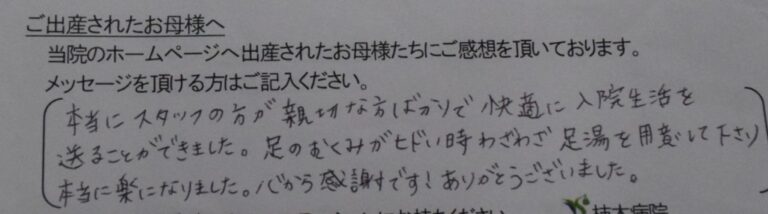 ご出産されたお母様へ
当院のホームページへ出産されたお母様たちにご感想を頂いております。
メッセージを頂ける方はご記入ください。
本当にスタッフの方が親切な方ばかりで快適に入院生活を
送ることができました。足のむくみがヒドい時わざわざ足湯を用意して下さり
本当に楽になりました。心から感謝です！ありがとうございました。